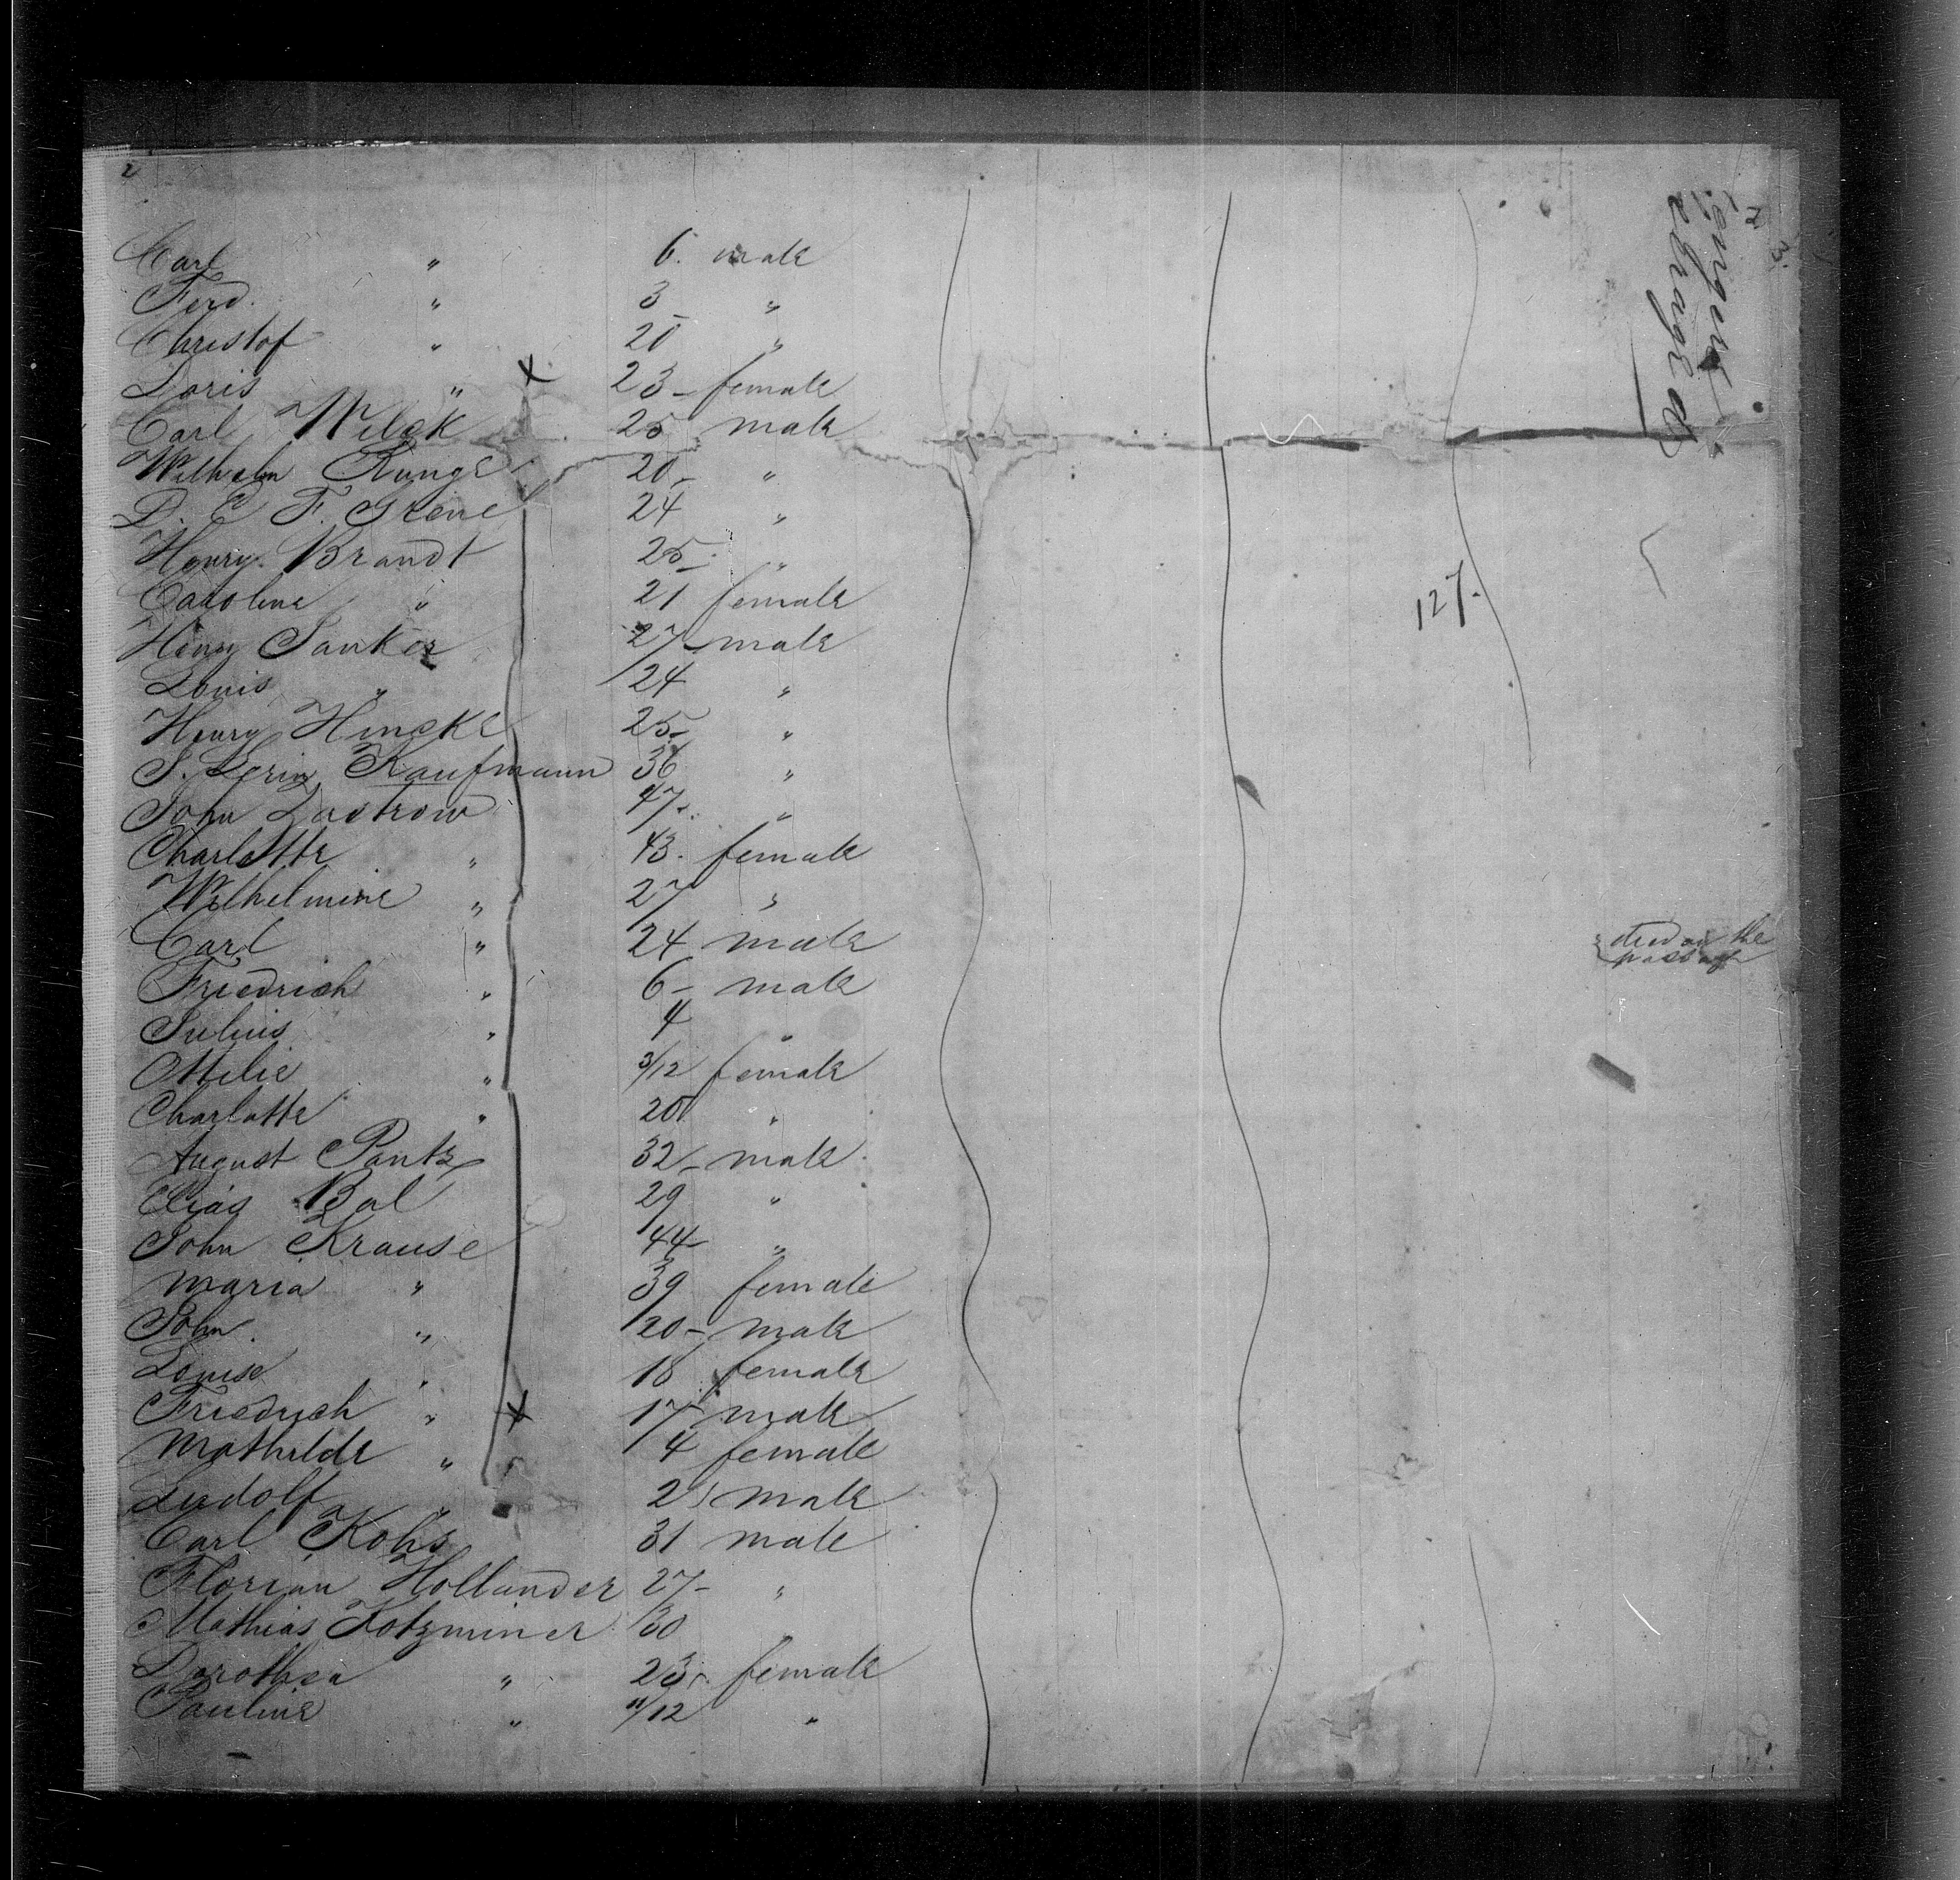 2
Carl " 6. male
Ferd. " 3 "
Christof " 20 "
Doris " 23 female
Carl Wilck 25 male
Wilhelm Runge 20 "
D. C F. Grene 24 "
Henry Brandt 25 "
Caroline " 21 female
Henry Janker 27 male
Louis " 24 "
Henry Hincke 25 "
S. Levin Kaufmann 36 "
John Lastrow 47 "
Charlotte " 43. female
Wilhelmine " 27 "
Carl " 24 male
Friedrich " 6 male
Julius " 4 "
Ottilie " 3/12 female
Charlotte " 20 "
August Pantz 32 male
Elias Bal 29 "
John Krause 44 "
Maria " 39 female
John " 20 male
Louise " 18 female
Friedrich " 17 male
Mathilde " 4 female
Ludolf " 2 male
Carl Kohs 31 male
Florian Hollander 27 "
Mathias Kotzminer 30 "
Dorothea " 23 female
Pauline " 11/12 "
127.
died on the
passage